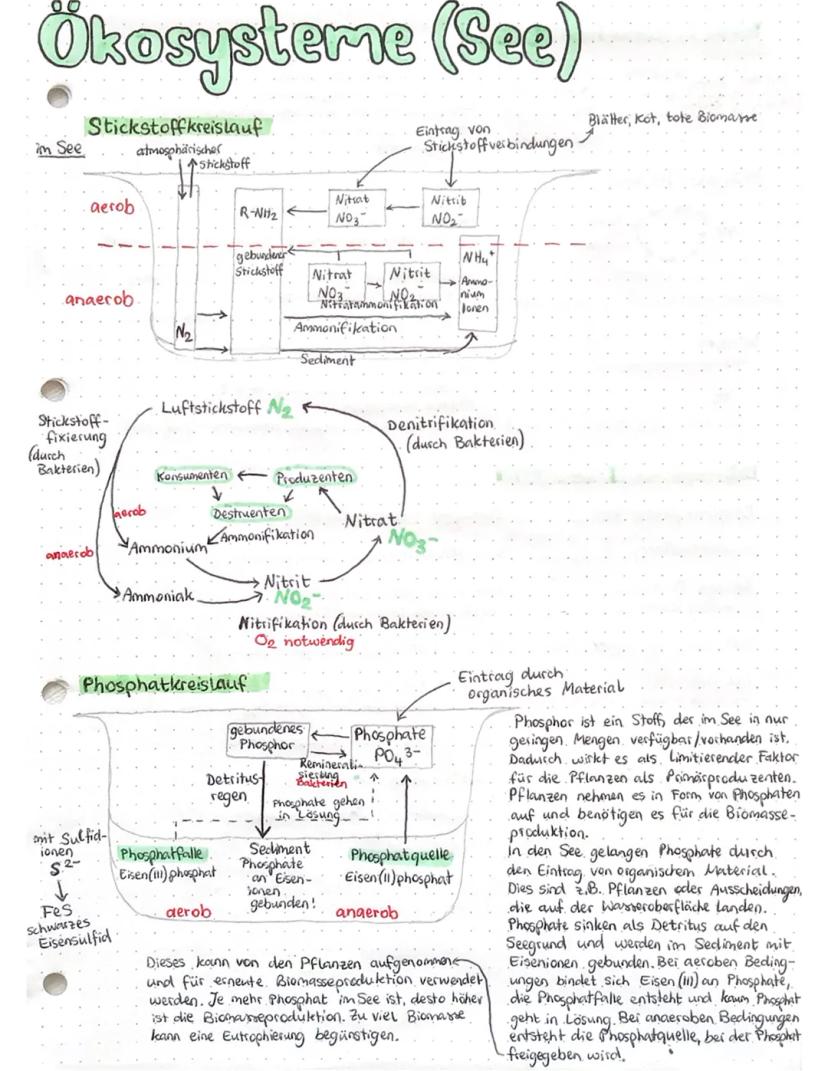 Ökosysteme (See)
Stickstoffkreislauf
im See
atmosphärischer
Stickstoff
Eintrag von
Stickstoffverbindungen
Blätter, Kot, tote Biomasse
aerob
R-NH2
Nitrat
NO3-
Nitrit
NO2-
anaerob
gebundener
Stickstoff
Nitrat
NO3-
Nitrit
NO2-
NH4+
Ammo-
nium
Ionen
Nitratammonifikation
N2
Ammonifikation
Sediment
Luftstickstoff N2
Stickstoff-
fixierung
(durch
Bakterien)
Denitrifikation
(durch Bakterien)
Konsumenten
Produzenten
Destruenten
aerob
Ammonifikation
Nitrat
NO3-
anaerob
Ammonium
Ammoniak
Nitrit
NO2-
Nitrifikation (durch Bakterien)
O2 notwendig
Phosphatkreislauf
Eintrag durch
organisches Material
gebundenes
Phosphor
Phosphate
PO4 3-
Reminerali-
sierung
Bakterien
Detritus-
regen
Phosphate gehen
in Lösung
mit Sulfid-
ionen
S2-
FeS
schwarzes
Eisensulfid
Phosphatfalle
Eisen(III)phosphat
aerob
Sediment
Phosphate
an Eisen-
ionen
gebunden!
Phosphatquelle
Eisen(II)phosphat
anaerob
Phosphor ist ein Stoff, der im See in nur
geringen Mengen verfügbar/vorhanden ist.
Dadurch wirkt es als Limitierender Faktor
für die Pflanzen als Primärproduzenten.
Pflanzen nehmen es in Form von Phosphaten
auf und benötigen es für die Biomasse-
produktion.
In den See gelangen Phosphate durch
den Eintrag von organischem Material.
Dies sind z.B. Pflanzen oder Ausscheidungen,
die auf der Wasseroberfläche landen.
Phosphate sinken als Detritus auf den
Seegrund und werden im Sediment mit
Eisenionen gebunden. Bei aeroben Beding-
ungen bindet sich Eisen (III) an Phosphate,
die Phosphatfalle entsteht und kaum Phosphat
geht in Lösung. Bei anaeroben Bedingungen
entsteht die Phosphatquelle, bei der Phosphat
freigegeben wird.
Dieses kann von den Pflanzen aufgenommen
und für erneute Biomasseproduktion verwendet
werden. Je mehr Phosphat im See ist, desto höher
ist die Biomasseproduktion. Zu viel Biomasse
kann eine Eutrophierung begünstigen.